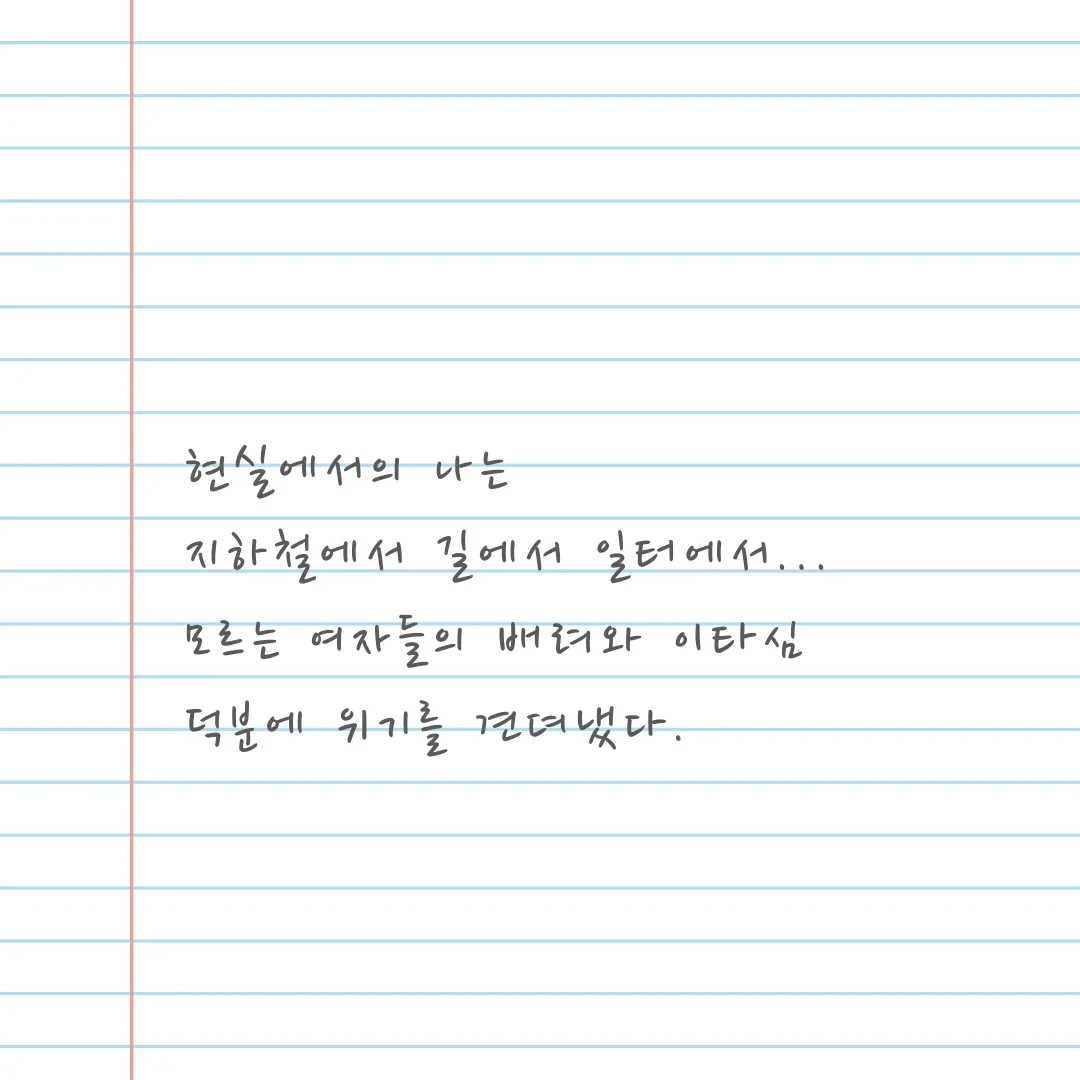 현실에서의 나는
지하철에서 길에서 일터에서...
모르는 여자들의 배려와 이타심
덕분에 위기를 견뎌냈다.